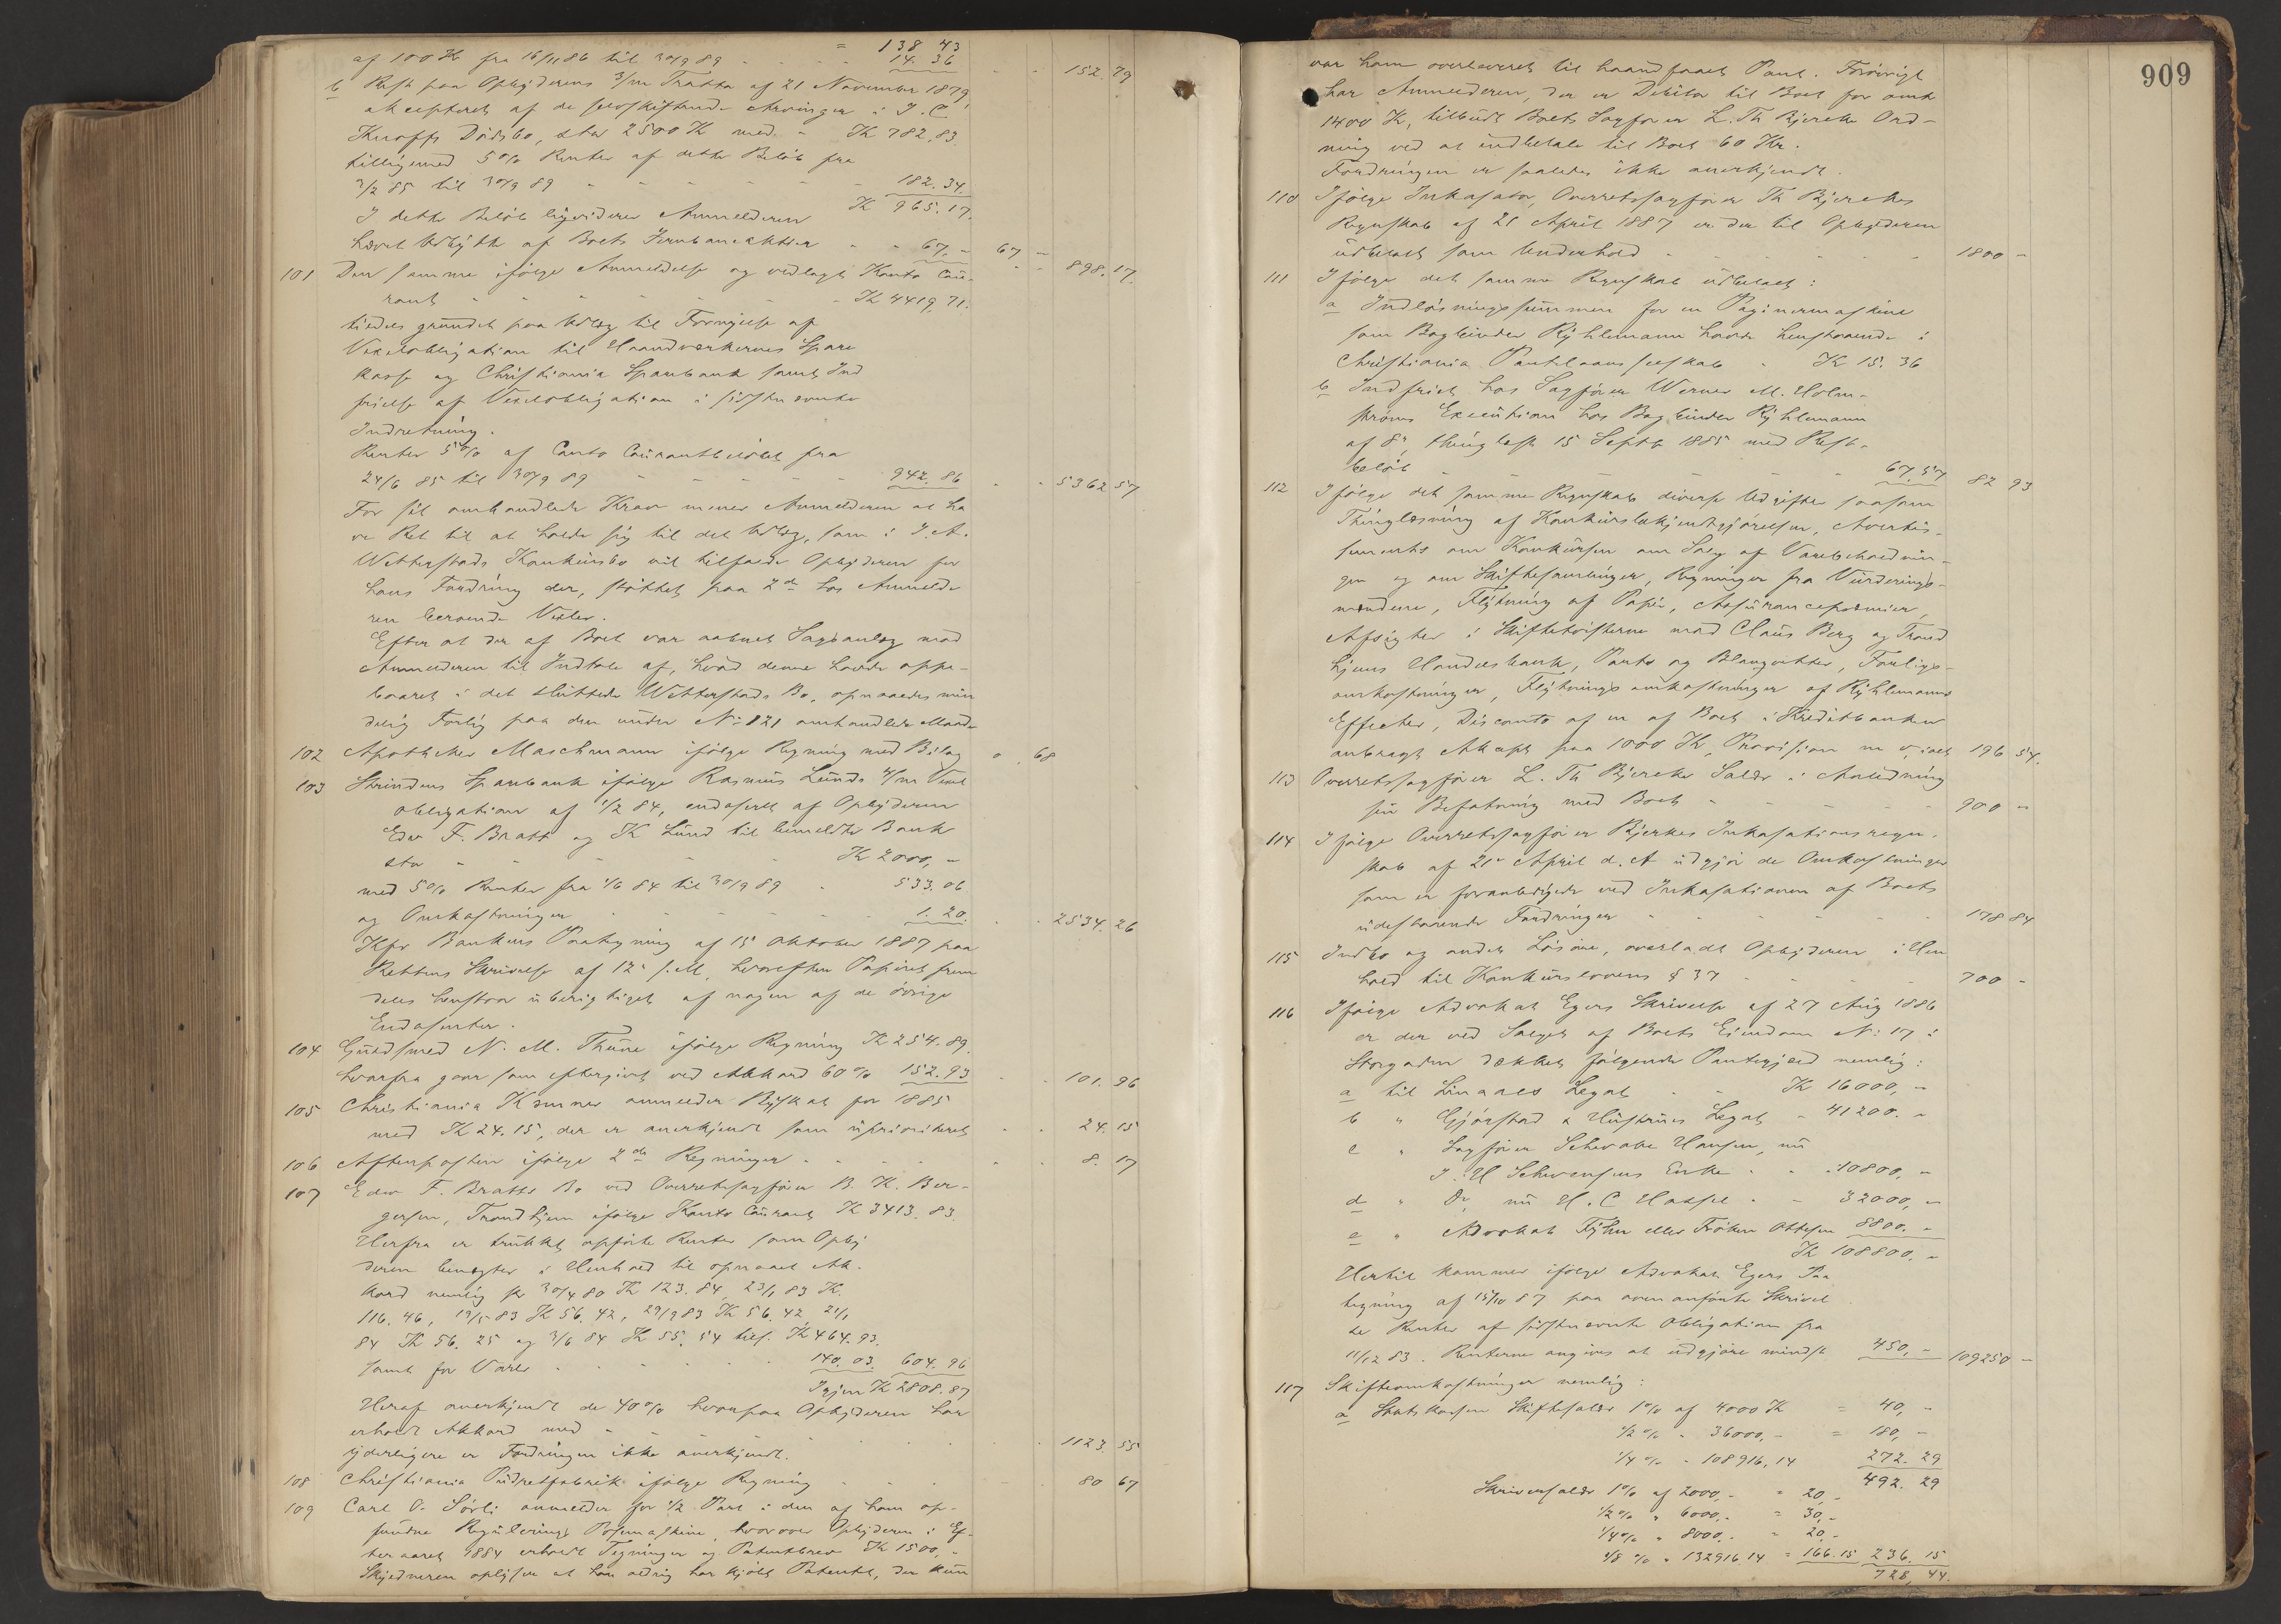 = 138 43
af 100 K fra 15/11 86 til 30/9 89 - - - 14. 36 - - 152. 79
b Rest paa Opbyderens 3/m Tratta af 21 November 1879,
akcepteret af de selvskiftende Arvinger i J. C.
Knoffs Dödsbo, stor 2500 K med - K 782. 83.
tilligemed 5% Renter af dette Belöb fra
3/2 85 til 30/9 89 - - - - - 182. 34.
K 965. 17.
I dette Beløb liqviderer Anmelderen
hævet Udbytte af Boets Jernbaneaktier - - 67,- 67 -
- - 898. 17.
101 Den samme ifølge Anmeldelse og vedlagt Konto Cou-
rant - - - - - - K 4419, 71.
tildels grundet paa Udlæg til Fornyelse af
Vexelobligation til Haandværkernes Spare
kasse og Christiania Sparebank samt Ind
frielse af Vexelobligation i sidstnævnte
Indretning.
Renter 5% af Conto Courantbelöbet fra
24/6 85 til 30/9 89 - - - - - 942. 86 - - 5362 57
For sit omhandlede Krav mener Anmelderen at ha
ve Ret til at holde sig til det Udlæg, som i J. A.
Wetterstads Konkursbo vil tilfalde Opbyderen for
hans Fordring der, støttet paa 2de hos Anmelde
ren beroende Vexler.
Efter at der af Boet var aabnet Sagsanlæg mod
Anmelderen til Indtale af, hvad denne havde oppe-
baaret i det sluttede Wetterstads Bo, opnaaedes min
delig Forlig paa den under No 121 omhandlede Maade
102 Apotheker Maschmann ifølge Regning med Bilag 0. 68
103 Strindens Sparebank ifølge Rasmus Lunds 4/m Vexel
obligation af 1/2 84, endosseret af Opbyderen
Edv F. Bratt og K Lund til bemeldte Bank
stor - - - - - K 2000, -
med 5% Renter fra 1/6 84 til 30/9 89 - 533. 06
og Omkostninger - - - - - 1. 20. - - 2534. 26
Kfr Bankens Paategning af 15 Oktober 1887 paa
Rettens Skrivelse af 12 s. M, hvorefter Papiret frem
deles henstaar uberigtiget af nogen af de øvrige
Endosenter.
104 Guldsmed N. M. Thune ifølge Regning K 254. 89.
hvorfra gaar som eftergivet ved Akkord 60% 152. 93 - - 101. 96
105 Christiania Kæmner anmelder Byskat for 1885
med K 24. 15, der er anerkjendt som uprioriteret - - 24. 15
106 Aftenposten ifølge 2de Regninger - - - - - 8. 17
107 Edv F. Bratts Bo ved Overretssagfører B. K. Ber-
gersen, Trondhjem ifølge Konto Courant K 3413. 83.
Herfra er trukket opførte Renter som Opby
deren benægter i Henhold til opnaaet Ak-
kord nemlig pr 30/4 80 K 123. 84, 23/1 83 K.
116. 46, 19/5 83 K 56. 42, 29/9 83 K 56. 42, 21/1
84 K 56. 25 og 3/6 84 K 55. 54 tils. K 464. 93.
samt for Varer - - - - - 140. 03. 604. 96
Igjen K 2808. 87
Heraf anerkjendt de 40% hvorpaa Opbyderen har
erholdt Akkord med - - - - - 1123. 55
yderligere er Fordringen ikke anerkjendt.
108 Christiania Pudretfabrik ifølge Regning - - - 80 67
109 Carl O. Sörli anmelder for 1/2 Part i den af ham op-
fundne Regulerings Posemaskine, hvorover Opbyderen i Ef-
teraaret 1884 erholdt Tegninger og Patentbrev K 1500, -
Skyldneren oplyser at han aldrig har kjøbt Patentet, der kun
909
var ham overleveret til haandfaaet Pant. Forøvrigt
har Anmelderen, der er Debitor til Boet for omtr
1400 K, tilbudt Boets Sagfører L. Th Bjercke Ord-
ning ved at indbetale til Boet 60 Kr.
Fordringen er saaledes ikke anerkjendt.
110 Ifølge Inkasator, Overretssagfører Th Bjerckes
Regnskab af 21 April 1887 er der til Opbyderen
udbetalt som Underhold - - - - - 1800 -
111 Ifølge det samme Regnskab udbetalt:
a Indløsningssummen for en Paginermaskine
som Bogbinder Rÿhlemann havde henstaaende i
Christiania Pantelaanselskab - K 15. 36
b Indfriet hos Sagfører Werner M. Holm-
strøms Execution hos Bogbinder Rÿhlemann
af 8', thinglæst 15 Septb 1885 med Rest-
beløb - - - - - 67. 57 82 93
112 Ifølge det samme Regnskab diverse Udgifter saasom
Thinglæsning af Konkursbekjendtgjørelsen, Avertis-
sements om Konkursen om Salg af Varebeholdnin-
gen og om Skiftesamlinger, Regninger fra Vurderings-
mændene, Flytning af Papir, Assurancepræmier,
Afsigter i Skiftetvisterne mod Claus Berg og Trond
hjems Handelsbank, Porto og Blanqvetter, Forligs-
omkostninger, Flytningsomkostninger af Rÿhlemanns
Effecter, Disconto af en af Boet i Kreditbanken
anbragt Akcept paa 1000 K, Provision m v, ialt 196 54.
113 Overretssagfører L. Th Bjercke Salær i Anledning
sin Befatning med Boet - - - - - 900 -
114 Ifølge Overretssagfører Bjerkes Inkasationsregn-
skab af 21 April d. A udgjør de Omkostninger
som er foranlediget ved Inkasationen af Boets
udestaaende Fordringer - - - - - 178 84
115 Indbo og andet Løsøre, overladt Opbyderen i Hen
hold til Konkurslovens § 37 - - - - - 700 -
116 Ifølge Advokat Egers Skrivelse af 27 Aug 1886
er der ved Salget af Boets Eiendom No 17 i
Storgaden dækket følgende Pantegjæld nemlig:
a til Linaaes Legat - - K 16000, -
b " Gjørstad & Hustrues Legat - 41200. -
c " Sagfører Schwabe Hansen, nu
J. H Schwensens Enke - - - 10800, -
d " Do nu H. C Hassel - - 32000, -
e " Advokat Fÿhn eller Frøken Ottesen 8800. -
K 108800. -
Hertil kommer ifølge Advokat Egers Paa
tegning af 15/10 87 paa ovenanførte Skrivel
se Renter af sidstnævnte Obligation fra
11/12 83. Renterne angives at udgjøre mindst 450, - 109250 -
117 Skifteomkostninger nemlig:
a Statskassen Skiftesalær 1% af 4000 K = 40, -
1/2 % - 36000, - = 180, -
1/4 % - 108916, 14 272. 29
492. 29
Skriversalær 1% af 2000, - = 20, -
1/2 % " 6000, - = 30, -
1/4 % " 8000. - = 20 -
1/8 % " 132916 14 = 166. 15 236. 15
728, 44.